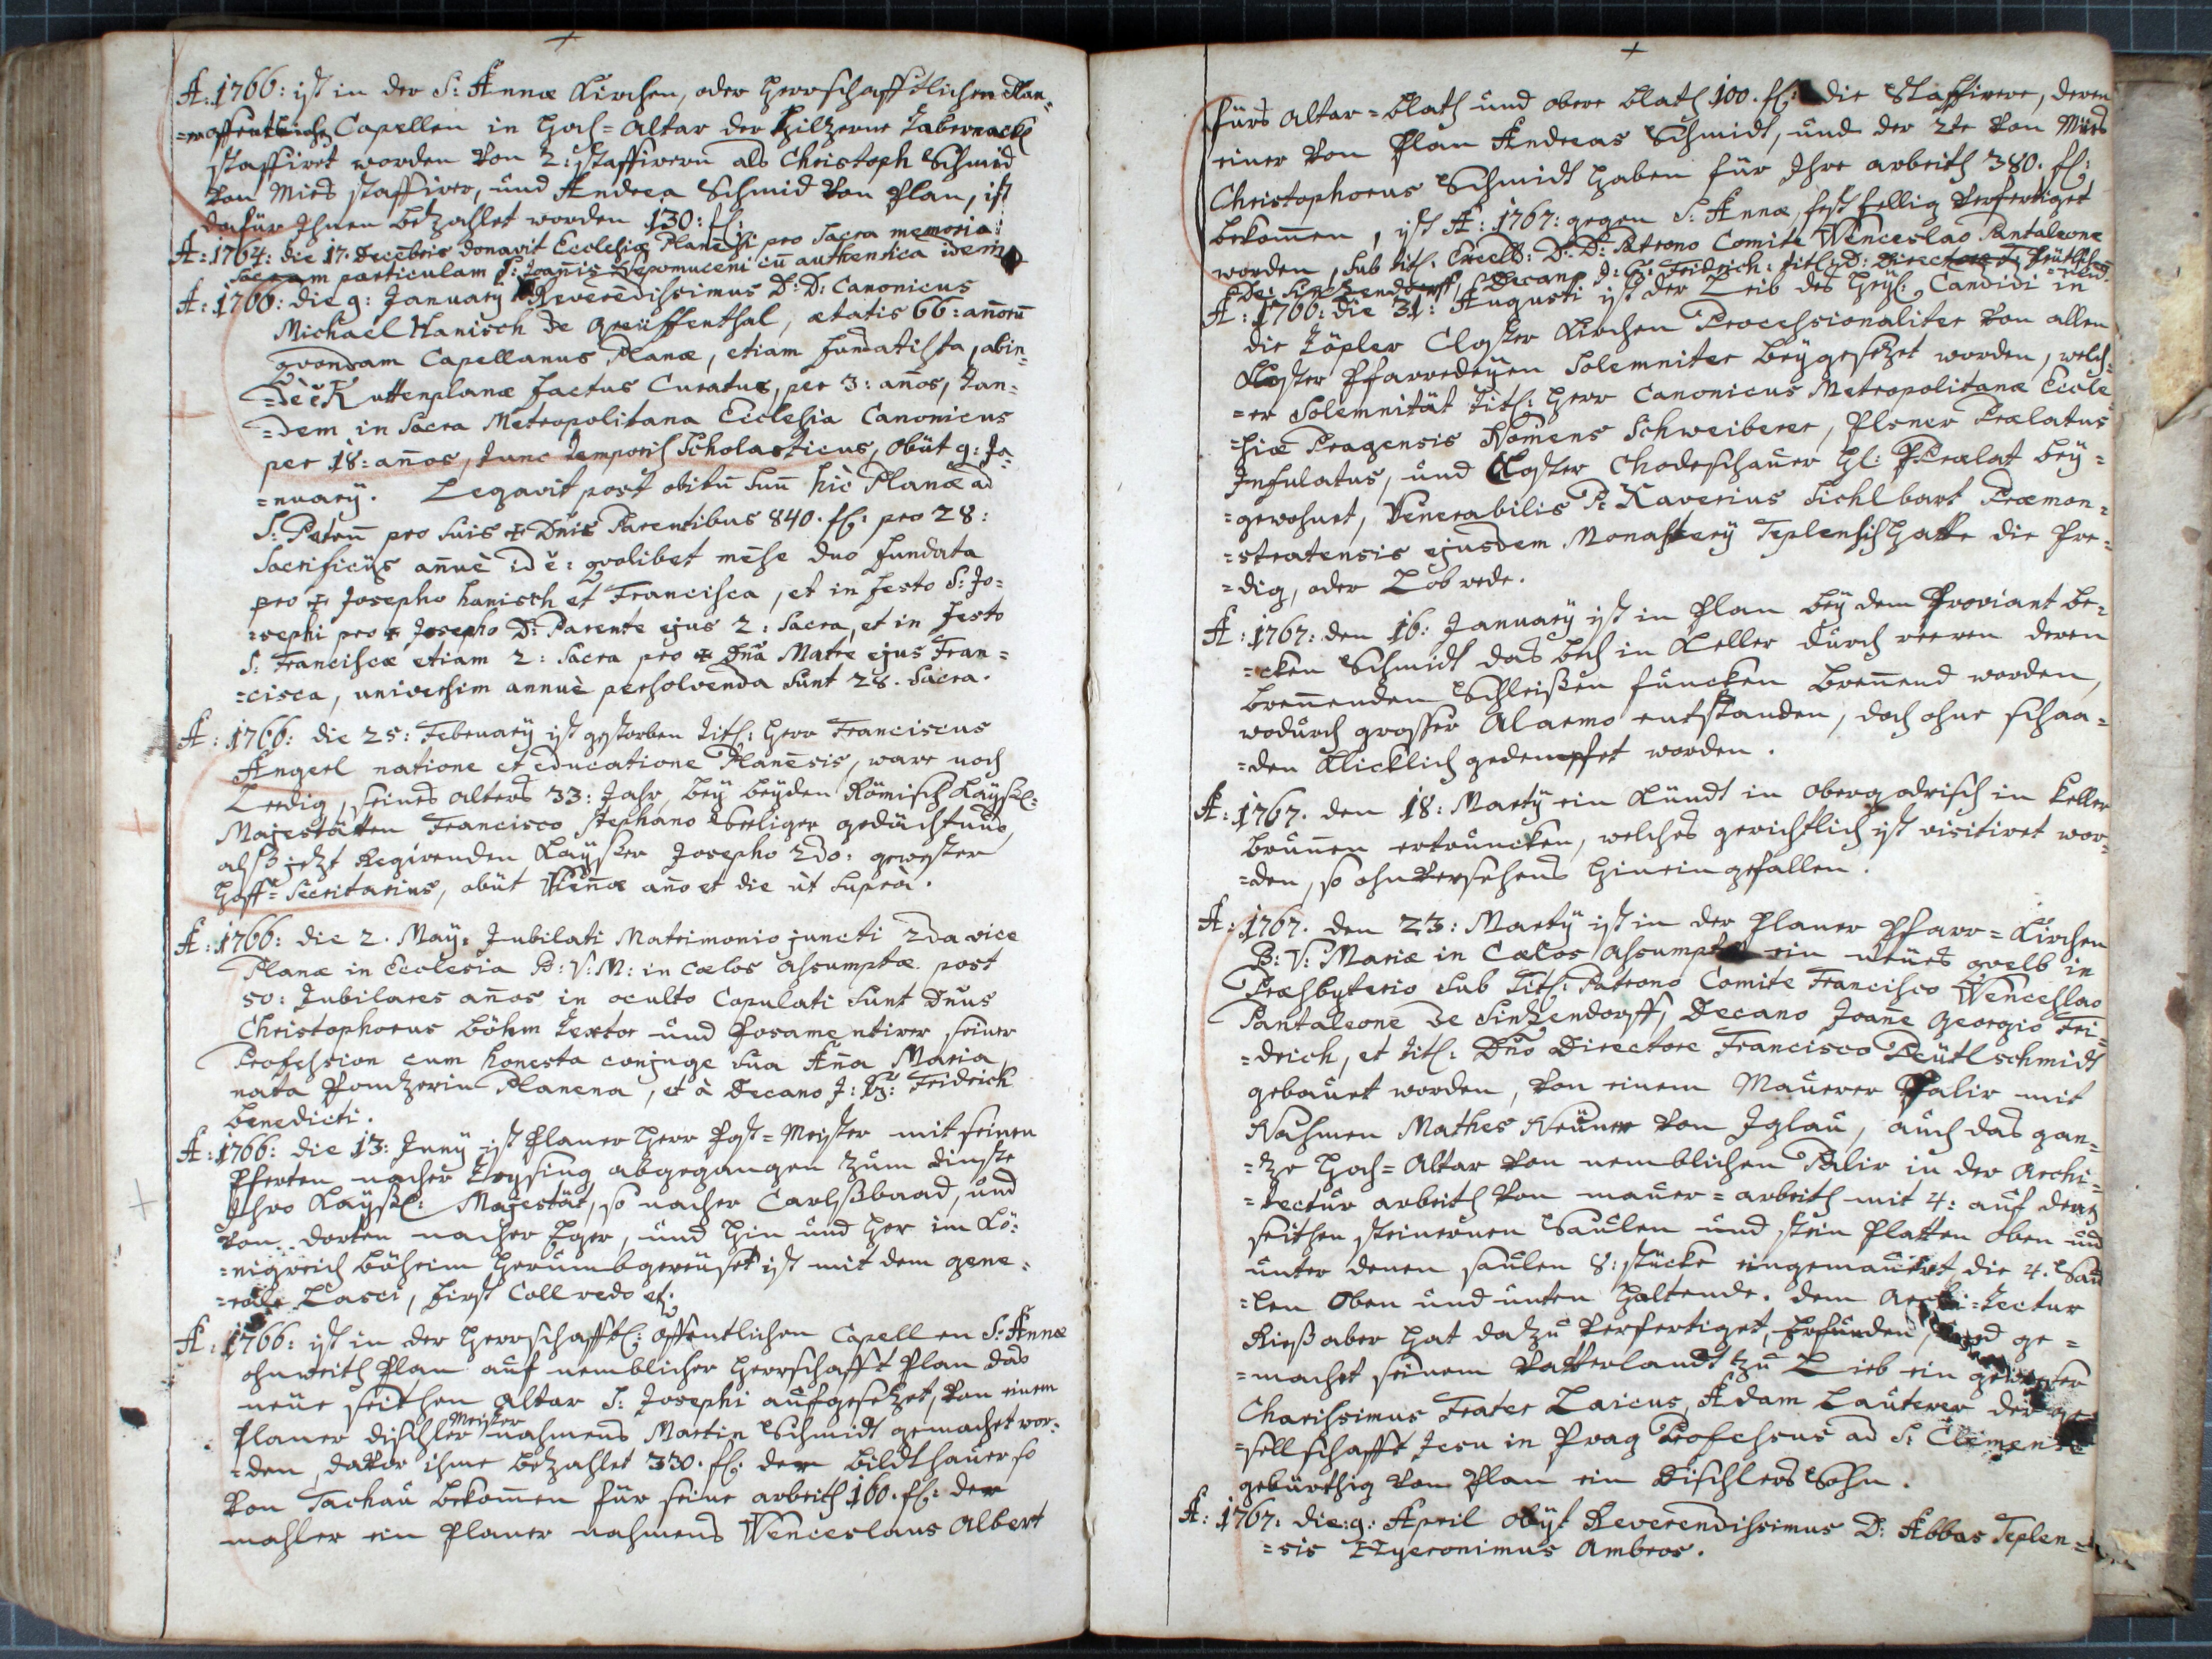 A: 1766: ist in der S: Annæ Kirchen, oder herrschafftlichen Plan-
=offentlichen Capellen in Hoch=Altar der hilzerne Tabernackl
staffiret worden von 2: staffirern als Christoph Schmid
von Mies staffirer, und Andrea Schmid von Plan, ist
dafür Ihnen bezahlet worden 130: fl:
A: 1764: die 17. Decēbris donavit Ecclesiæ Planēsi pro Sacra memoria
Sacram particulam S: Joañis Nepomuceni cū authentica idem
A: 1766: die 9: January Reverēdissimus D: D: Canonicus
Michael Hanisch de Greiffenthal, ætatis 66: añorū
quondam Capellanus Planæ, etiam fundatista, abin-
=dè Kuttenplanæ factus Curatus, per 3: años, tan-
=dem in Sacra Metropolitana Ecclesia Canonicus
per 18: años, tunc temporis Scholasticus, obiit 9: Ja-
=nuarÿ. Legavit post obitū suū hìc Planæ ad
S: Petrū pro suis ✠ Dñis Parentibus 840. fl: pro 28:
Sacrificÿs añuè id ē: quolibet mēse duo fundata
pro ✠ Josepho hanisch et Francisca, et in festo S: Jo=
=sephi pro ✠ Josepho D: Parente ejus 2: Sacra, et in festo
S: Franciscæ etiam 2: Sacra pro ✠ Dña Matre ejus Fran=
=cisca, universim annuè persolvenda sunt 28. Sacra.
A: 1766: die 25: February ist gestorben Titl: Herr Franciscus
Angerl natione et educatione Planēsis, ware noch
Leedig, seines alters 33: Jahr, beÿ beÿden Römisch Kaÿsl:
Majestätten Francisco Stephano Seeliger gedächtnus,
alß jetzt Regirenden Kaÿser Josepho 2do: gewester
Hoff=Secritarius, obiit Vieñæ año et die ùt suprà.
A: 1766: die 2. Maÿ: Jubilati Matrimonio juncti 2da vice
Planæ in Ecclesia B: V: M: in cœlos assumptæ post
50: Jubilares años in oculto Copulati sunt Dñus
Christophorus Böhm Textor und Posamentirer seiner
Profession cum honesta conjuge sua Aña Maria
nata Planena, et à Decano J: G: Fridrich
benedicti.
A: 1766: die 13: Junÿ ist Planer Herr Post=Meister mit seinen
Pferten nacher abgegangen zum dinste
Ihro Kaÿsl: Majestät, so nacher Carlsßbaad, und
von dorten nacher Eger, und hin und her im Kö=
=nigreich Böheim herumbgereüset ist mit dem gene=
=rale Lasci, Fürst Collredo et:
A: 1766: ist in der Herrschafftl: öffentlichen Capellen S: Annæ
ohnweith Plan auf nemblicher Herrschafft Plan das
neüe seithen Altar S: Josephi aufgesetzet, von einem
Planer dischler Meister nahmens Martin Schmidt gemachet wor=
=den, darvor ihme bezahlet 330. fl: der bildthauer so
von Tachau bekomen für seine arbeith 160. fl: der
mahler ein Planer nahmens Wenceslaus Albert
fürs Altar=blath und obere blath 100. fl: die Staffirer, deren
einer von Plan Andreas Schmidt, und der 2te von Mies
Christophorus Schmidt haben für Ihre arbeith 380. fl:
bekomen, ist A: 1767: gegen S: Annæ, fest fellig verfertiget
worden, sub titl: Excell: D: D: Patrono Comite Wenceslao Pantaleone
de Sinzendorff, Decano J: G: Fridrich: titl: D: Directore F:
A: 1766: die 31: Augusti ist der Leib des Heÿl: Candidi in
die Töpler Closter Kirchen Processionaliter von allen
Closter Pfarredeÿen Solemniter beÿgesetzet worden, welch=
=er Solemnität Titl: Herr Canonicus Metropolitanæ Eccle=
=siæ Pragensis Nomens Schweiberer, Plsner Prælatus
Infulatus, und Closter Chodeschauer Hl: Prælat beÿ=
=gewohnet, Venerabilis P: Xaverius Sichlbart Præmon=
=stratensis ejusdem Monasterÿ Teplensis hatte die Pre=
=dig, oder Lobrede.
A: 1767: den 16: Januarÿ ist in Plan beÿ dem Proviant be=
=cken Schmidt das in Keller durch deren
brenenden Schleißen funcken brenend worden,
wodurch grosser Alarmo entstanden, doch ohne schaa=
=den Klicklich gedempfet worden.
A: 1767. den 18: Martÿ ein Kündt in Obergodrisch in Keller
brunen ertruncken, welches gerichtlich ist visitiret wor=
=den, so ohnversehens hineingefallen.
A: 1767. den 23: Martÿ ist in der Planer Pfarr=Kirchen
B: V: Mariæ in Cœlos Assumptæ ein neües gwelb in
Præsbyterio sub Titl: Patrono Comite Francisco Wenceslao
Pantaleone de Sinzendorff, Decano Joañe Georgio Fri=
=drich, et titl: Dño Directore Francisco Preütlschmidt
gebauet worden, von einem Mauerer Palir mit
Nahmen Mathes Neüner von Iglau, auch das gan=
=tze Hoch=Altar von nemblichen Palir in der Archi=
=tectur arbeith von mauer=arbeith mit 4: auf deren
seithen steinernen Saulen und stein Platten oben und
unter denen saulen 8: stücke eingemauert die 4. Sau
=len oben und unten haltende. dem Archi=tectur
Rieß aber hat dazu verfertiget, erfunden, und ge=
=machet seinem vatterlandt zu Lieb ein gewester
Charissimus Frater Laicus, Adam Lauterer der ge=
=sellschafft Jesu in Prag Professus ad S: Clement
gebürthig von Plan ein Tischlers Sohn.
A: 1767: die: 9: April obÿt Reverendissimus D: Abbas Teplen=
=sis Hyeronimus Ambros.